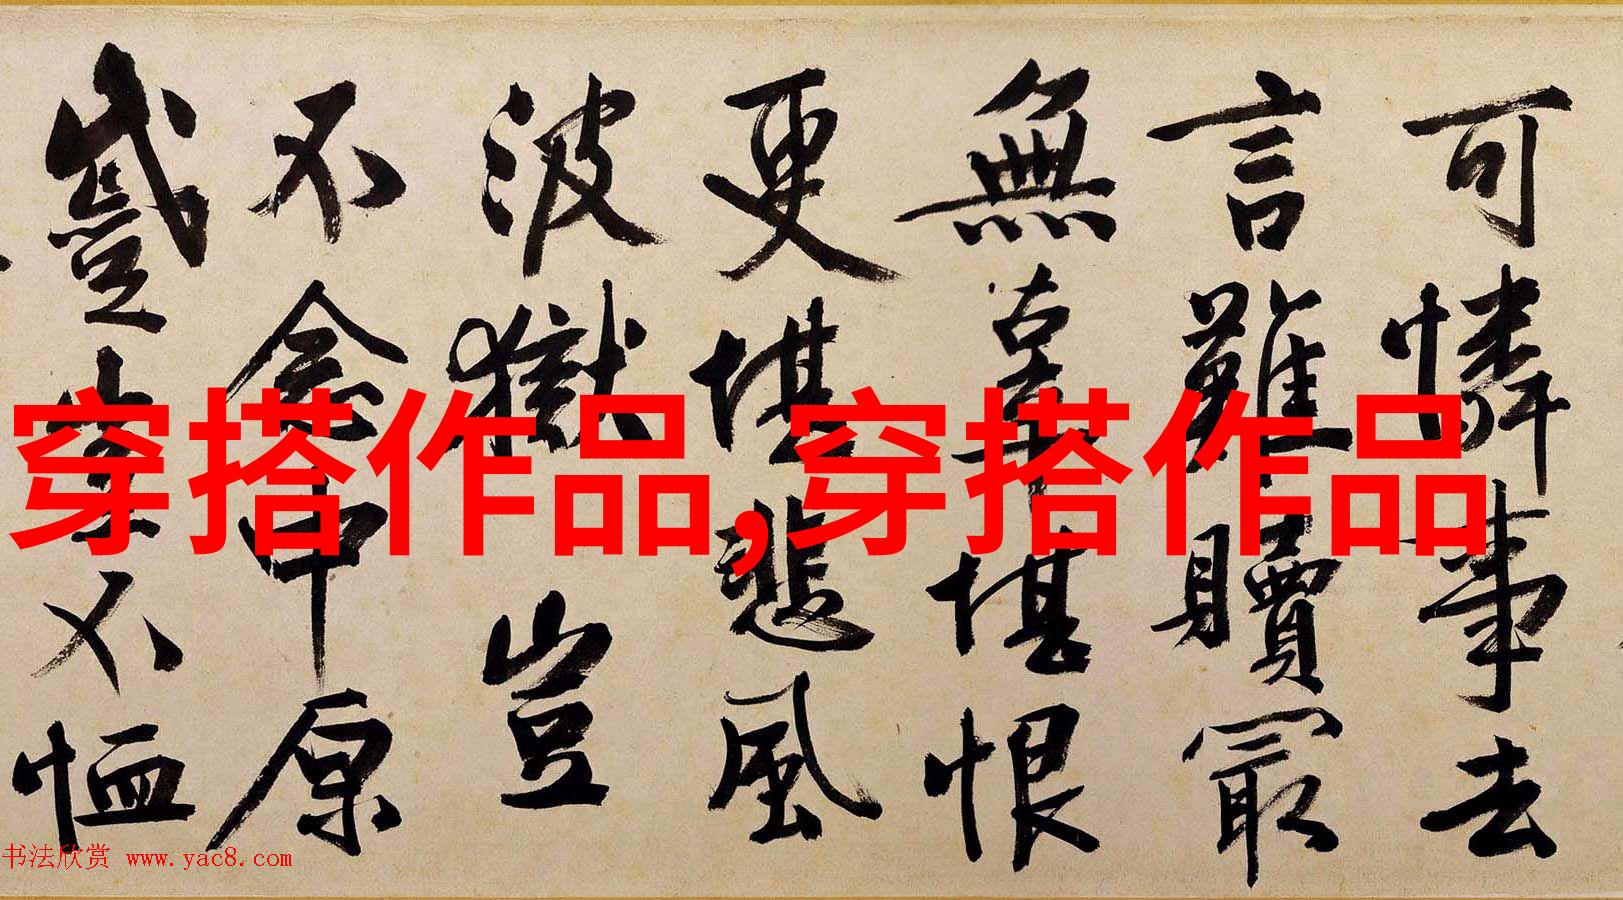 可憐事去
言難贖最
無辜堪恨
更堪悲風
波獄豈
不念中原
蹙豈不恤
穿搭作品,穿搭作品
书法欣赏 www.yac8.com